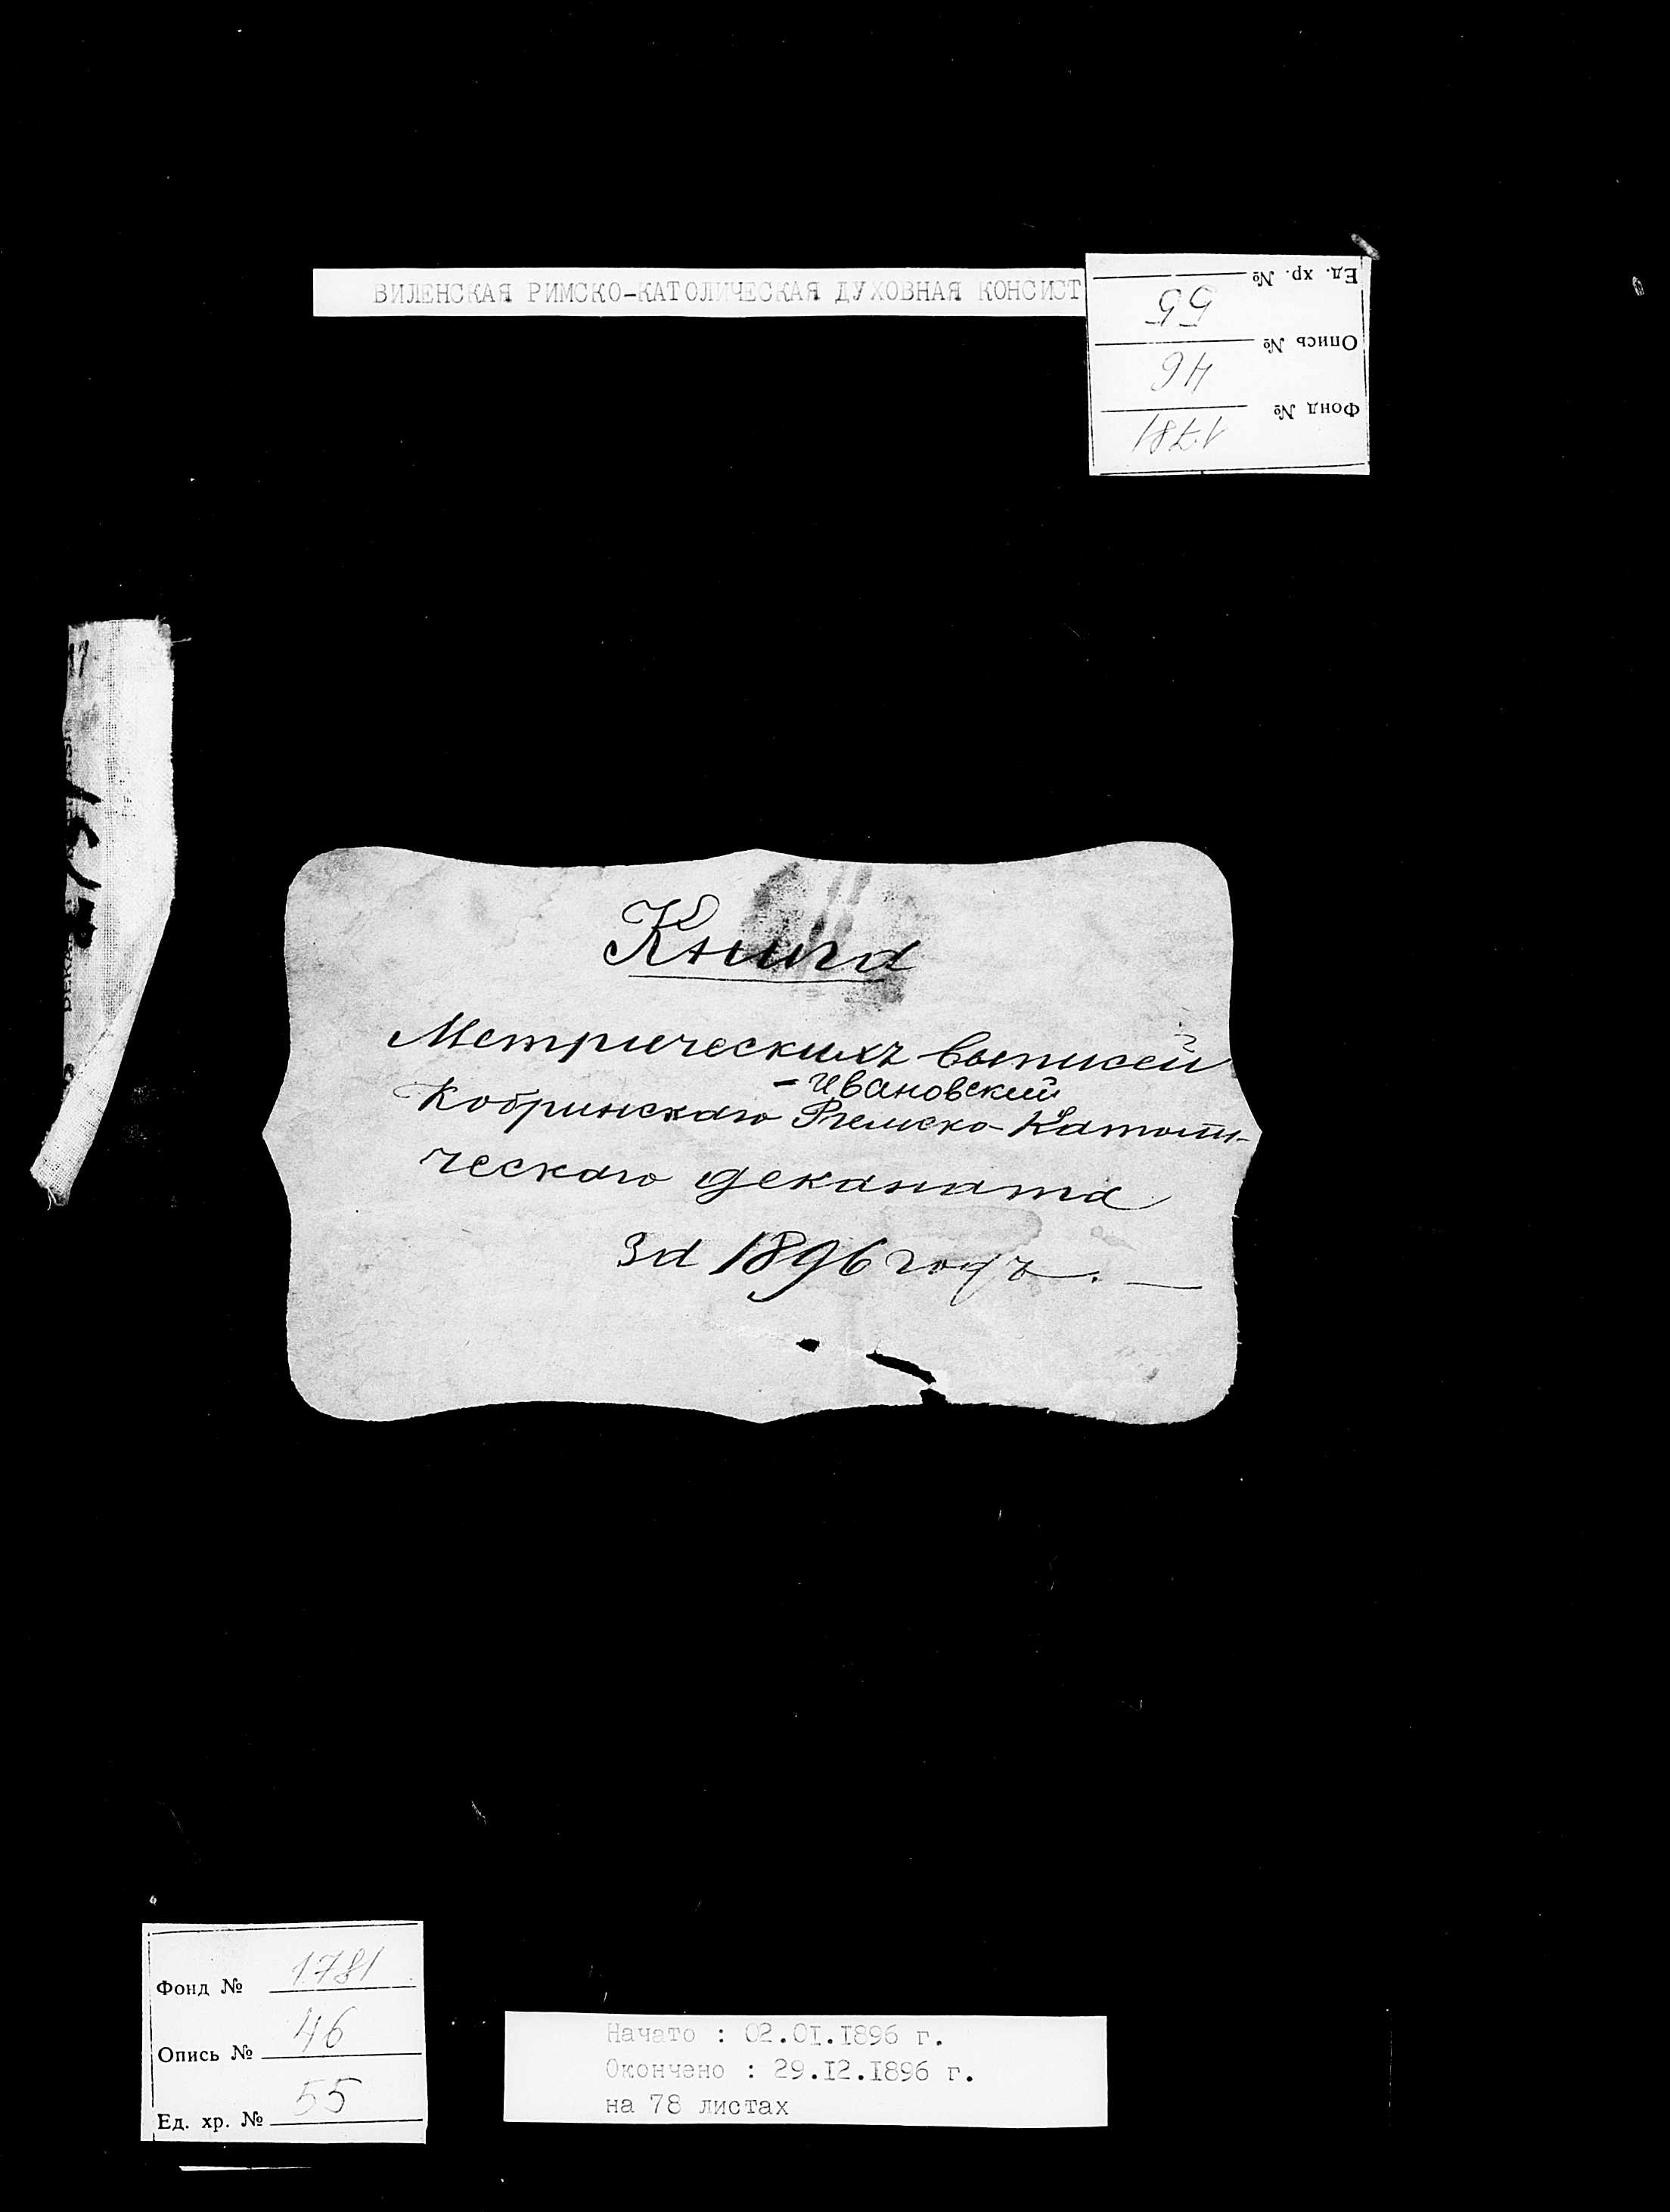 ВИЛЕНСКАЯ РИМСКО-КАТОЛИЧЕСКАЯ ДУХОВНАЯ КОНСИСТ
Фонд № 1781
Опись № 46
Ед. хр. № 55
Книга
Метрическихъ выписей
-Ивановский
Кобринскаго Римско-Католи-
ческаго деканата
за 1896 годъ.—
Фонд № 1781
Опись № 46
Ед. хр. № 55
Начато : 02.01.1896 г.
Окончено : 29.12.1896 г.
на 78 листах